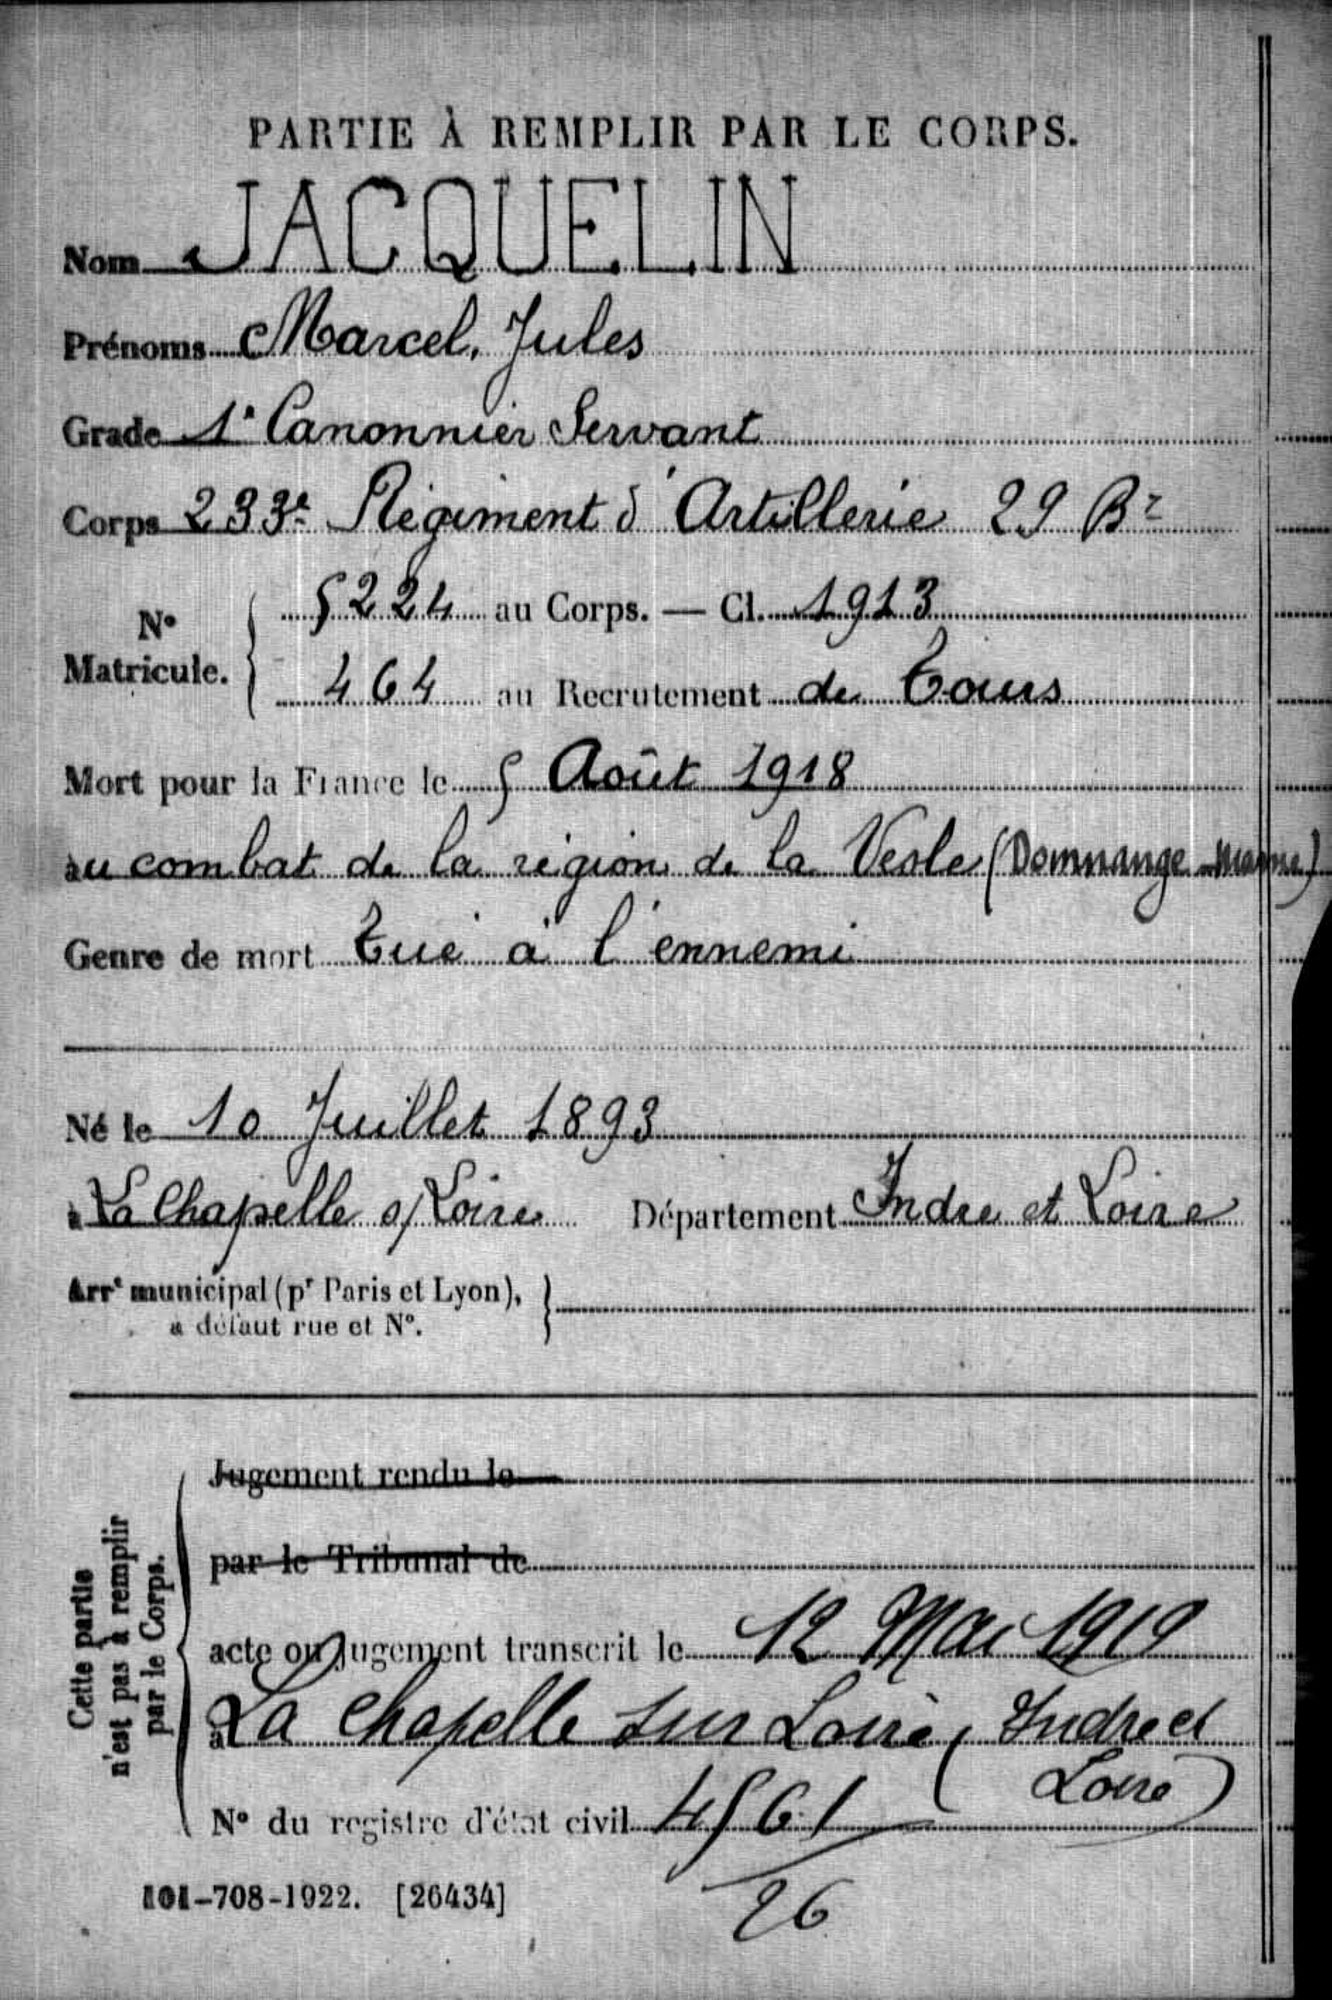 PARTIE À REMPLIR PAR LE CORPS.
Nom JACQUELIN
Prénoms Marcel, Jules
Grade 1e Canonnier Servant
Corps 233e Régiment d'Artillerie 29 Bie
No Matricule. 5224 au Corps. — Cl. 1913
464 au Recrutement de Tours
Mort pour la France le 5 Août 1918
au combat de la région de la Vesle (Domnange Marne)
Genre de mort Tué à l'ennemi
Né le 10 Juillet 1893
à La Chapelle s/Loire Département Indre et Loire
Arrt municipal (pr Paris et Lyon),
à défaut rue et No.
Cette partie
n'est pas à remplir
par le Corps.
Jugement rendu le
par le Tribunal de
acte ou jugement transcrit le 12 Mai 1919
à La Chapelle sur Loire (Indre et
Loire)
No du registre d'état civil 4561/26
101-708-1922. [26434]